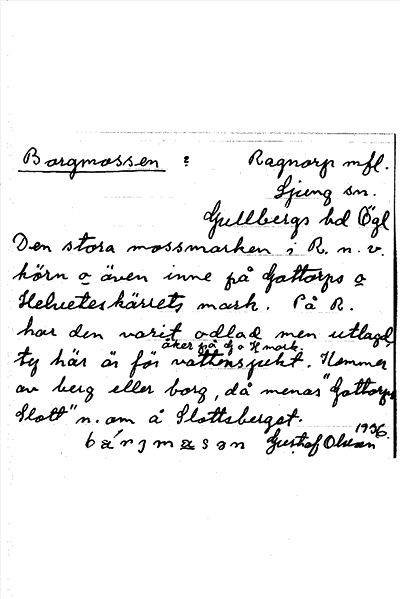 Borgmossen : Ragnorp mfl.
Ljung sn.
Gullbergs hd Ögl
Den stora mossmarken i R. n. v.
hörn o även inne på Gottorps o
Helveteskärrets mark. På R.
har den varit odlad men utlagd,
åker på G o H mark.
ty här är för vattensjukt. Kommer
av berg eller borg, då menas "Gottorps
Slott" n. om å Slottsberget.
1936.
Gustaf Olsson